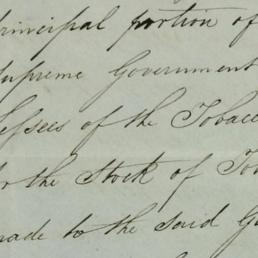 principal portion of
Supreme Government
Lessees of the Tobacc
the Stock of To
made to the said G